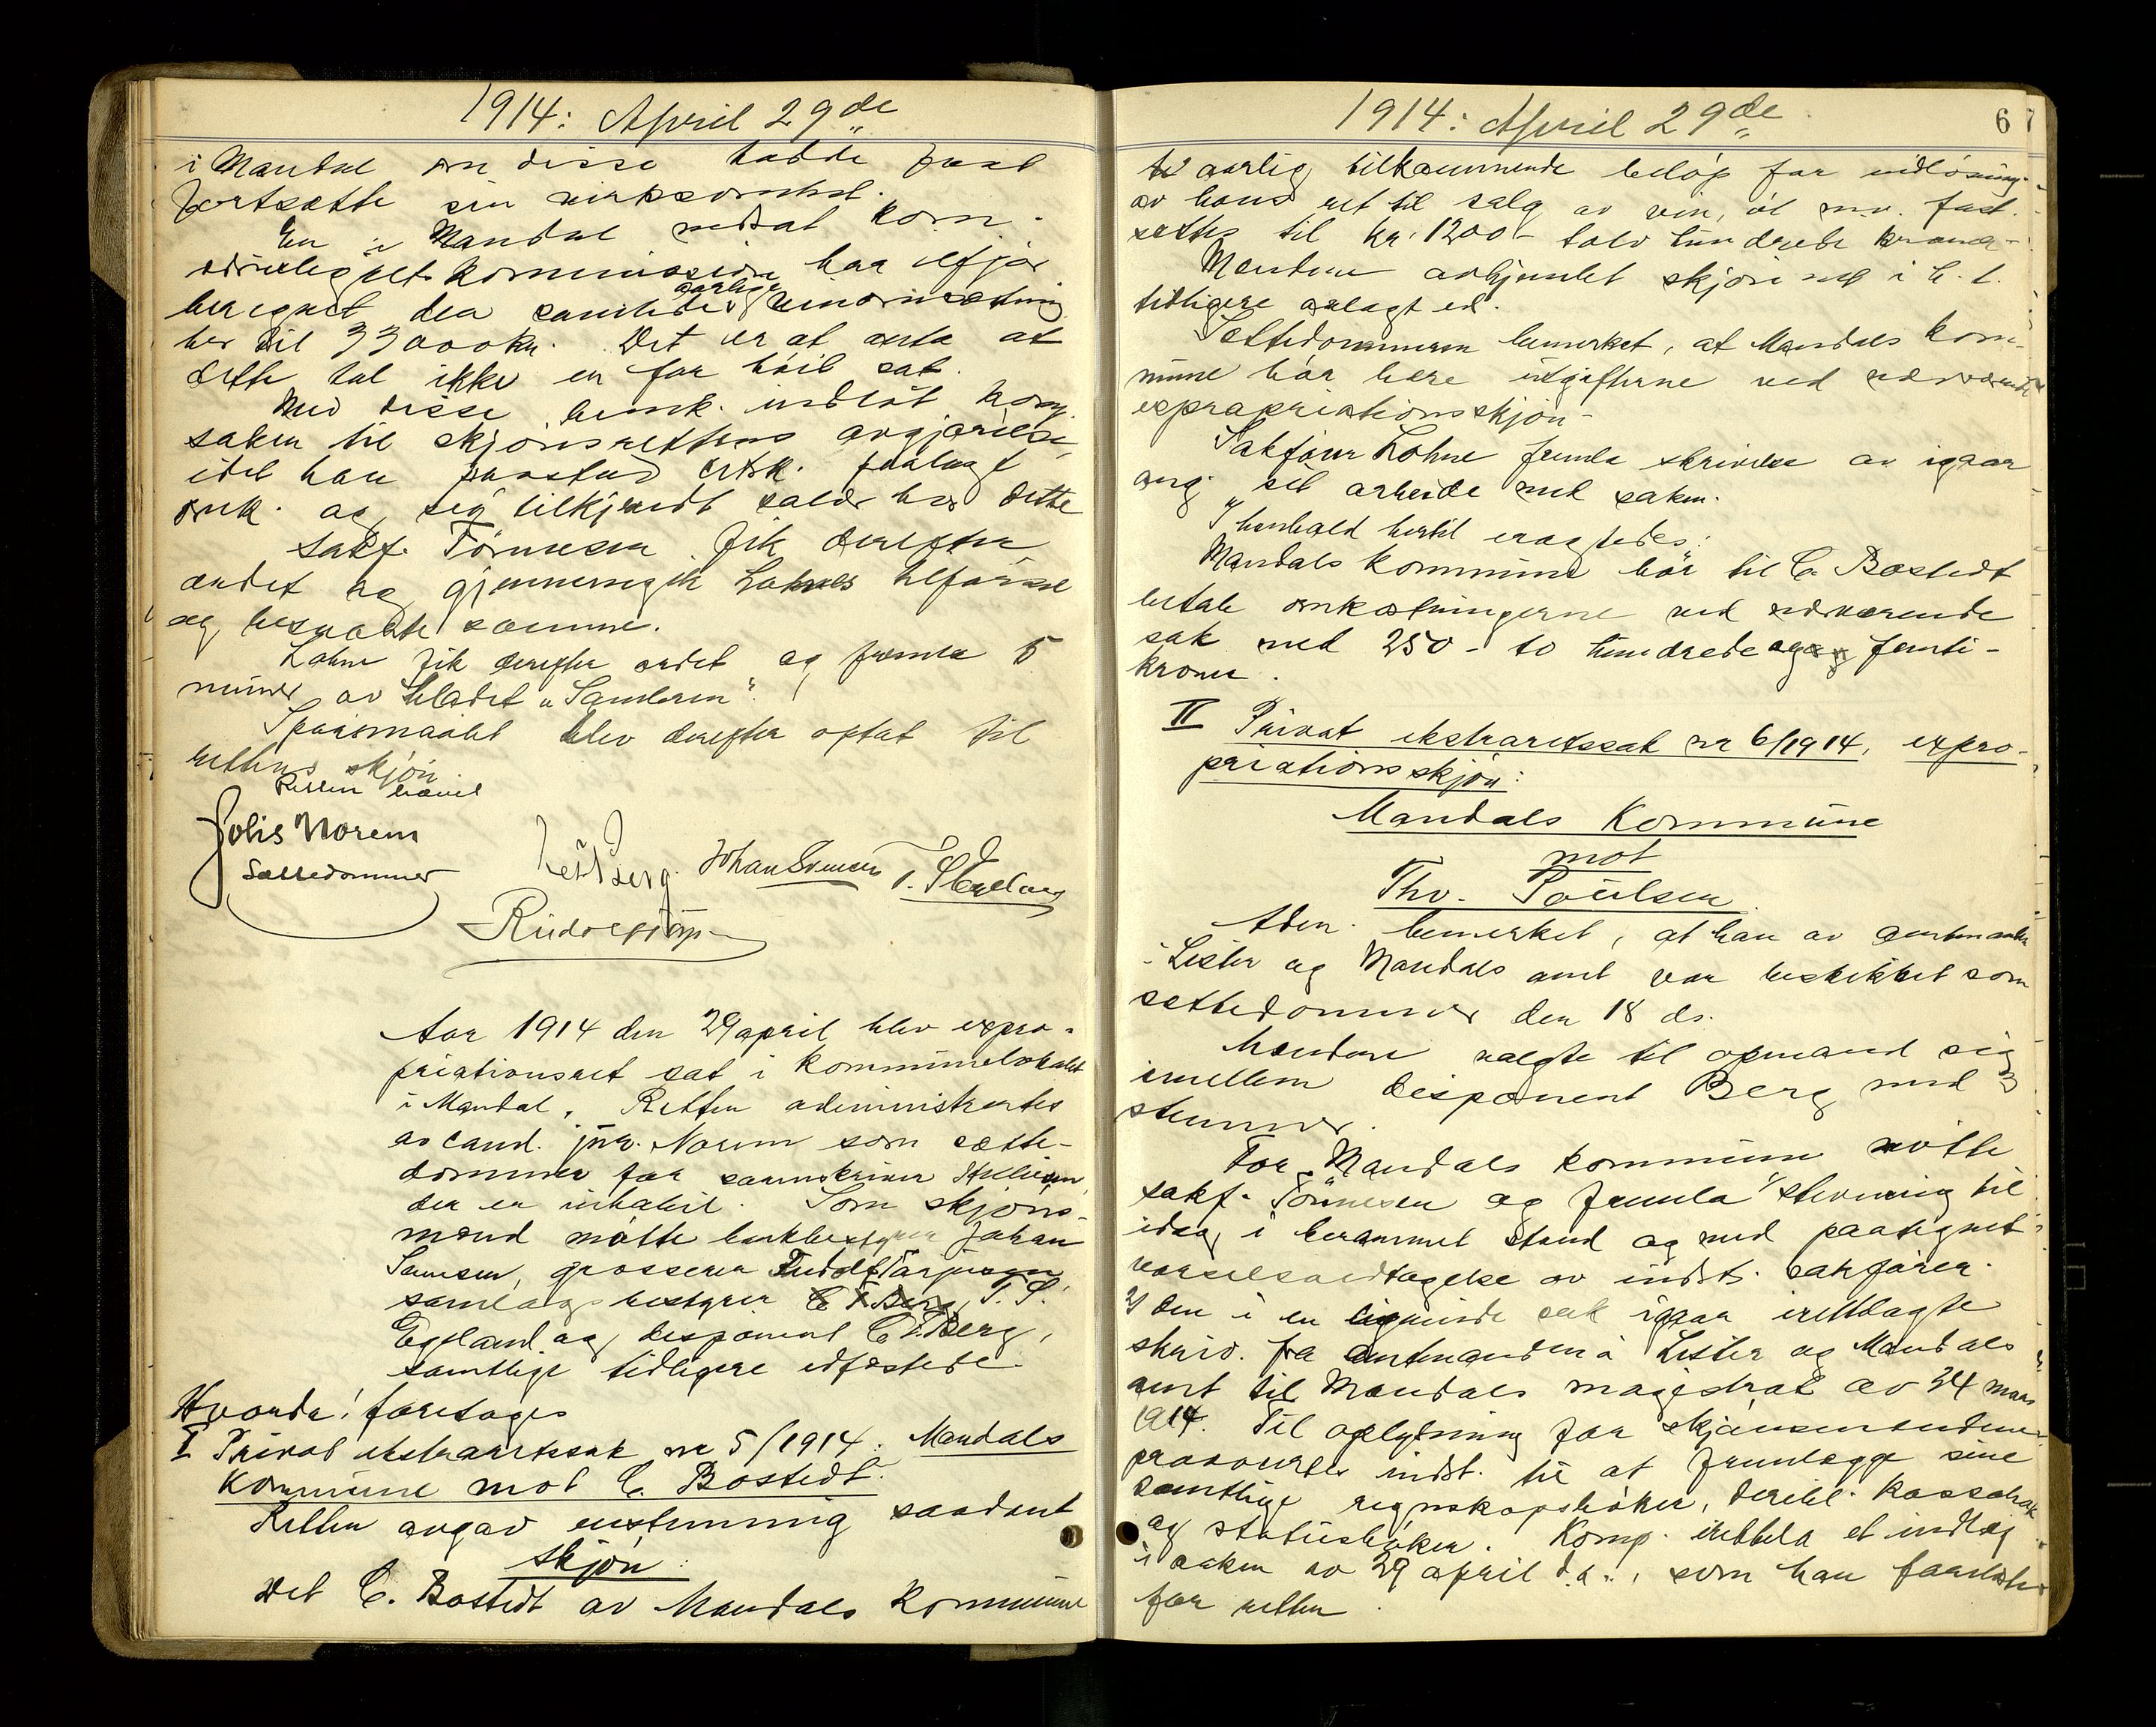 1914: April 29de
i Mandal om disse hadde faat
fortsætte sin virksomhet.
En i Mandal nedsat kom-
har ifjor
beregnet den samlede aarlige vinomsætning
her til 33000 kr. Det er at anta at
dette tal ikke er for høit sat.
Med disse bemerk. indlot komp.
saken til skjønsrettens avgjørelse,
idet han paastod cit̄sk. paalagt
omk. og sig tilkjendt salær hos dette
Sakf. Tönnesen fik derefter
ordet og gjennemgik Lohnes tilførsel
og besvarte samme.
Lohne fik derefter ordet og fremla 5
numre av bladet "Samleren".
Spørsmaalet blev derefter optat til
rettens skjøn.
Retten hævet
Solis Norem
Sættedommer
Leif Berg. Johan Svensen T. S. Egeland
Aar 1914 den 29 april blev expro-
priationsret sat i kommunelokalet
i Mandal. Retten administrertes
av cand. jur. Norem som sætte-
dommer for sorenskriver
der er inhabil. Som skjøns-
mænd møtte bankbestyrer Johan
grosserer
samlagsbestyrer C. F. Berg, T. S.
Egeland og disponent C. F. Berg,
samtlige tidligere edfæstede.
Hvorda! foretoges
I Privat ekstraretssak nr 5/1914: Mandals
Kommune mot C. Bostedt.
Retten avgav enstemmig saadant
skjøn:
Det C. Bostedt av Mandals Kommune
1914: April 29de
67
aarlig tilkommende beløp for indløsning
av hans ret til salg av vin, øl mv. fast-
sættes til kr. 1200 - tolv hundrede kroner -
Mændene avhjemlet skjønnet i h. t.
tidligere avlagt ed.
Sættedommeren bemerket, at Mandals kom-
mune bør bære utgifterne ved nærværende
expropriationsskjøn -
Sakfører Lohne fremla skrivelse av igaar
ang. sit arbeide med saken.
I henhold hertil eragtedes:
Mandals Kommune bør til C. Bostedt
betale omkostningerne ved nærværende
sak med 250 - to hundrede og femti -
kroner.
II Privat ekstraretssak nr 6/1914, expro-
priationsskjøn:
Mandals Kommune
mot
Thv. Poulsen
Adm. bemerket, at han av amtmanden
i Lister og Mandals amt var beskikket som
sættedommer den 18 ds.
Mændene valgte til opmand sig
imellem disponent Berg med 3
stemmer.
For Mandals kommune møtte
sakf. Tönnesen og fremla 1/ stevning til
idag i berammet stand og med paategnet
varselsvedtagelse av indst. sakfører.
2/ den i en lignende sak igaar irettelagte
skriv. fra amtmanden i Lister og Mandals
amt til Mandals magistrat av 24 mars
1914. Til oplysning for skjønsmændene
provocertes indst. til at fremlægge sine
samtlige regnskapsbøker, deribl. kassabok
og statusbøker. Komp. irettela et indlæg
i saken av 29 april d. a., som han
for retten.